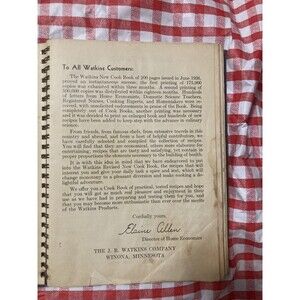 To All Watkins Customers:
The Watkins New Cook Book of 200 pages issued in June 1936,
proved an instantaneous success; the first printing of 175,000
copies was exhausted within three months. A second printing of
100,000 copies was distributed within eighteen months. Hundreds
of letters from Home Economics, Domestic Science Teachers,
Registered Nurses, Cooking Experts, and Homemakers were re-
ceived, which were unanimous in praise of the Book. Being
completely out of Cook Books, another printing was necessary
and it was decided to print an enlarged book and hundreds of new
recipes have been added to keep step with the advance in culinary
science.
From friends, from famous chefs, from extensive travels in this
country and abroad, and from a host of helpful contributors,
we have carefully selected and compiled the collection of recipes.
You will find that they are economical, others more elaborate for
entertaining; recipes that are tasty and satisfying, yet contain in
proper proportions the elements necessary to the building of health.
It is with this idea in mind that we have endeavored to put
into the Watkins Revised New Cook Book, the recipes that will
interest you and give your daily task a spice and zest, which will
change monotony to a pleasant diversion and make cooking a de-
lightful adventure.
We offer you a Cook Book of practical, tested recipes and hope
that you will get as much real pleasure and enjoyment in their
use as we have had in preparing and testing them for you, and
that you may become more enthusiastic than ever over the merits
of the Watkins Products.
Cordially yours,
Elaine Allen
Director of Home Economics
THE J. R. WATKINS COMPANY
WINONA, MINNESOTA